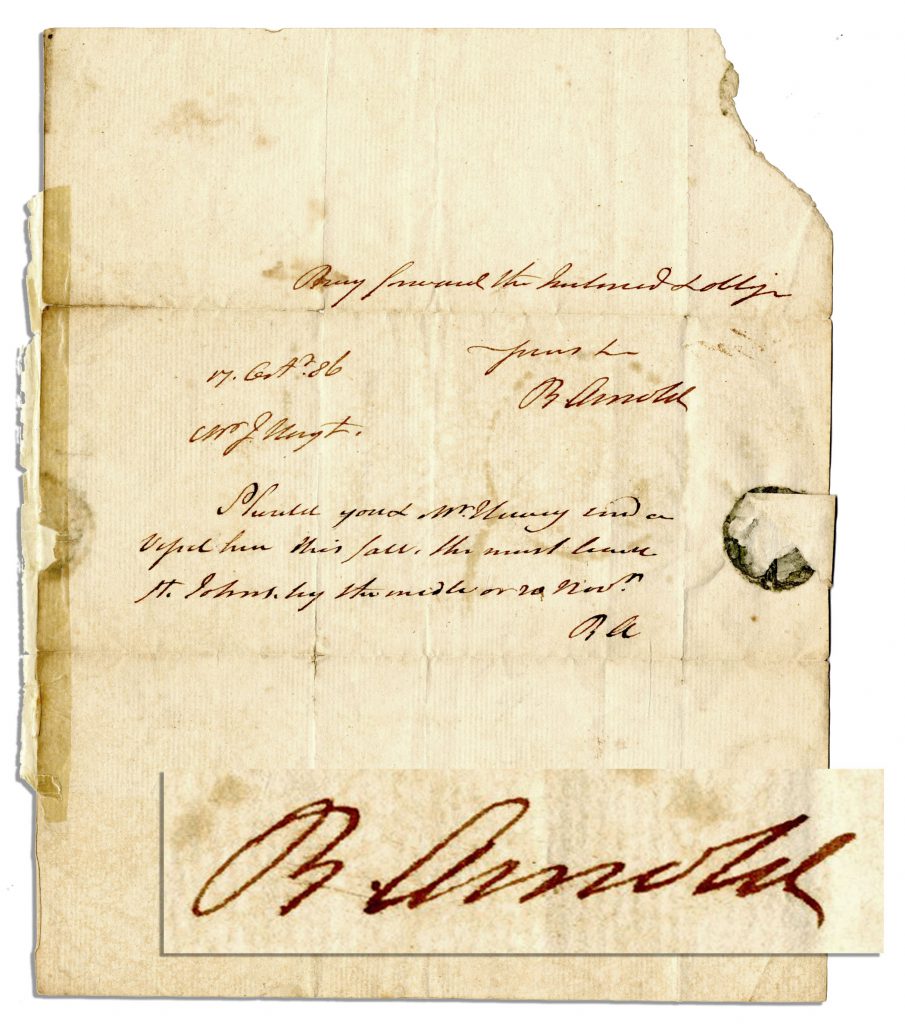 Pray forward the Inclosed & oblige
Yours &c
B. Arnold
17. Octr. 86
Mr J. Hoyt.
Should you & Mr. Huey send a
Vessel here this fall. she must leave
St. Johns. by the midle or 20 Novr.
B A
B. Arnold